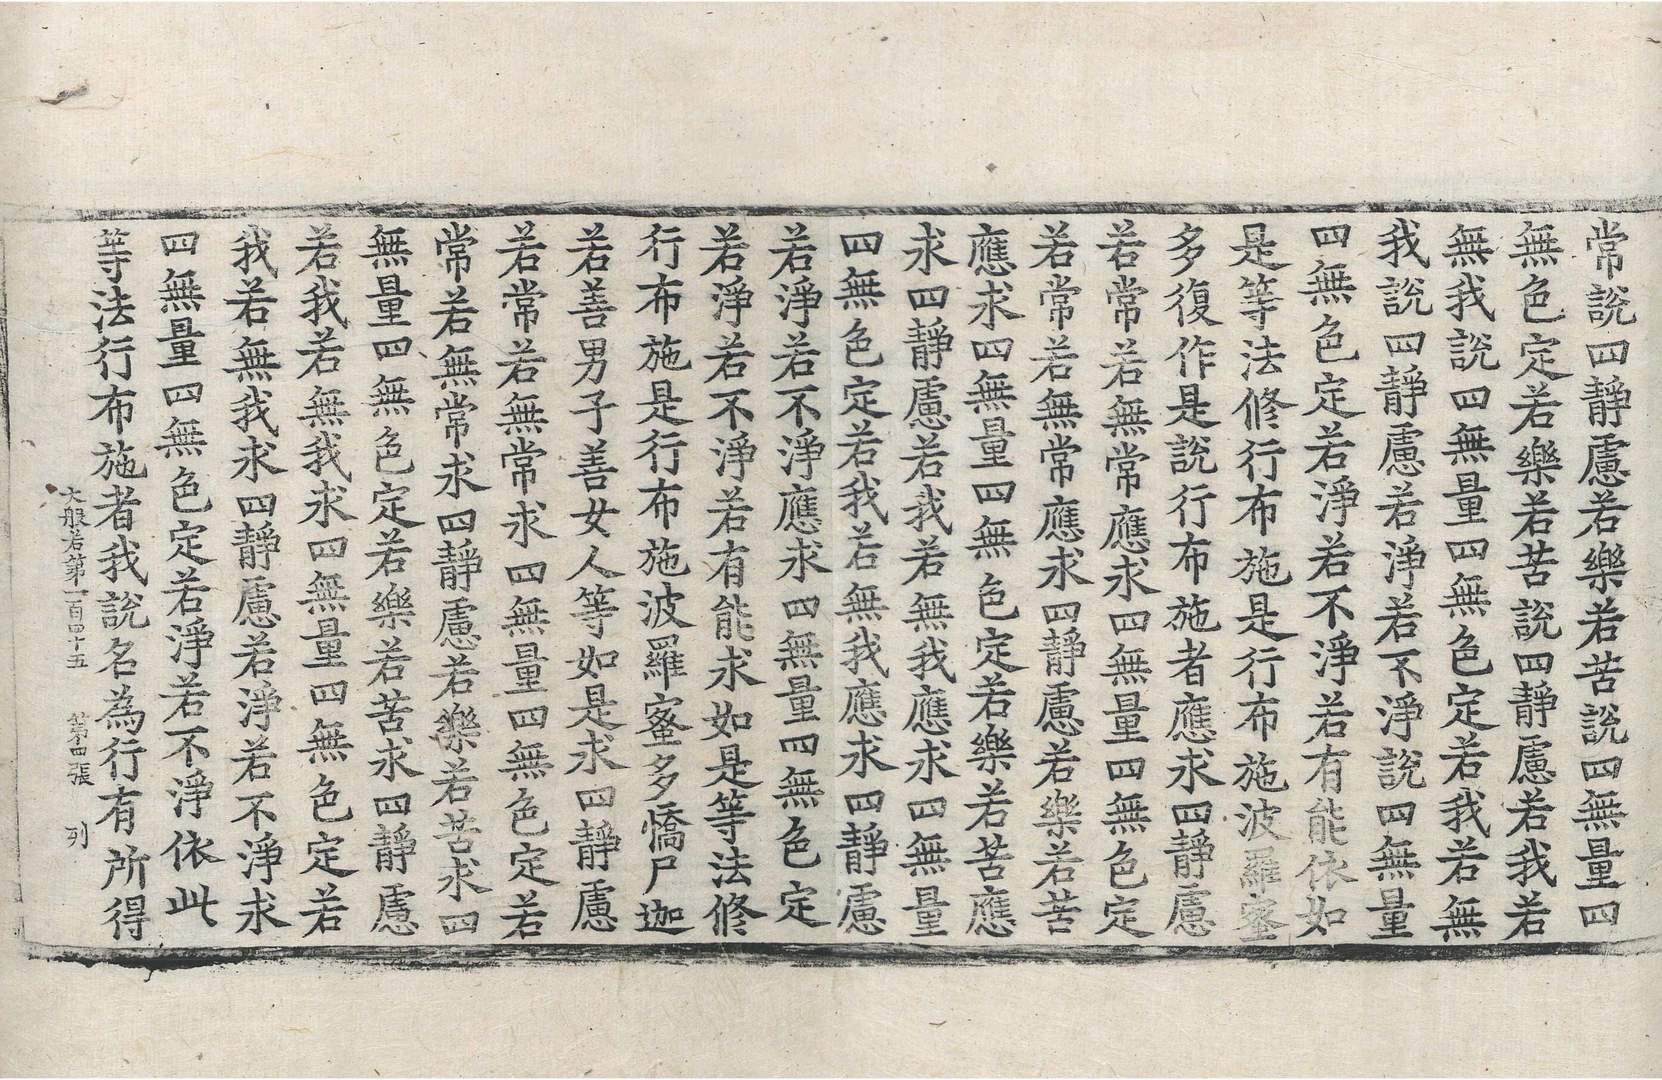 常說四靜慮若樂若苦說四無量四
無色定若樂若苦說四靜慮若我若
無我說四無量四無色定若我若無
我說四靜慮若淨若不淨說四無量
四無色定若淨若不淨若有能依如
是等法修行布施是行布施波羅蜜
多復作是說行布施者應求四靜慮
若常若無常應求四無量四無色定
若常若無常應求四靜慮若樂若苦
應求四無量四無色定若樂若苦應
求四靜慮若我若無我應求四無量
四無色定若我若無我應求四靜慮
若淨若不淨應求四無量四無色定
若淨若不淨若有能求如是等法修
行布施是行布施波羅蜜多憍尸迦
若善男子善女人等如是求四靜慮
若常若無常求四無量四無色定若
常若無常求四靜慮若樂若苦求四
無量四無色定若樂若苦求四靜慮
若我若無我求四無量四無色定若
我若無我求四靜慮若淨若不淨求
四無量四無色定若淨若不淨依此
等法行布施者我說名為行有所得
大般若第一百四十五 第四張 列